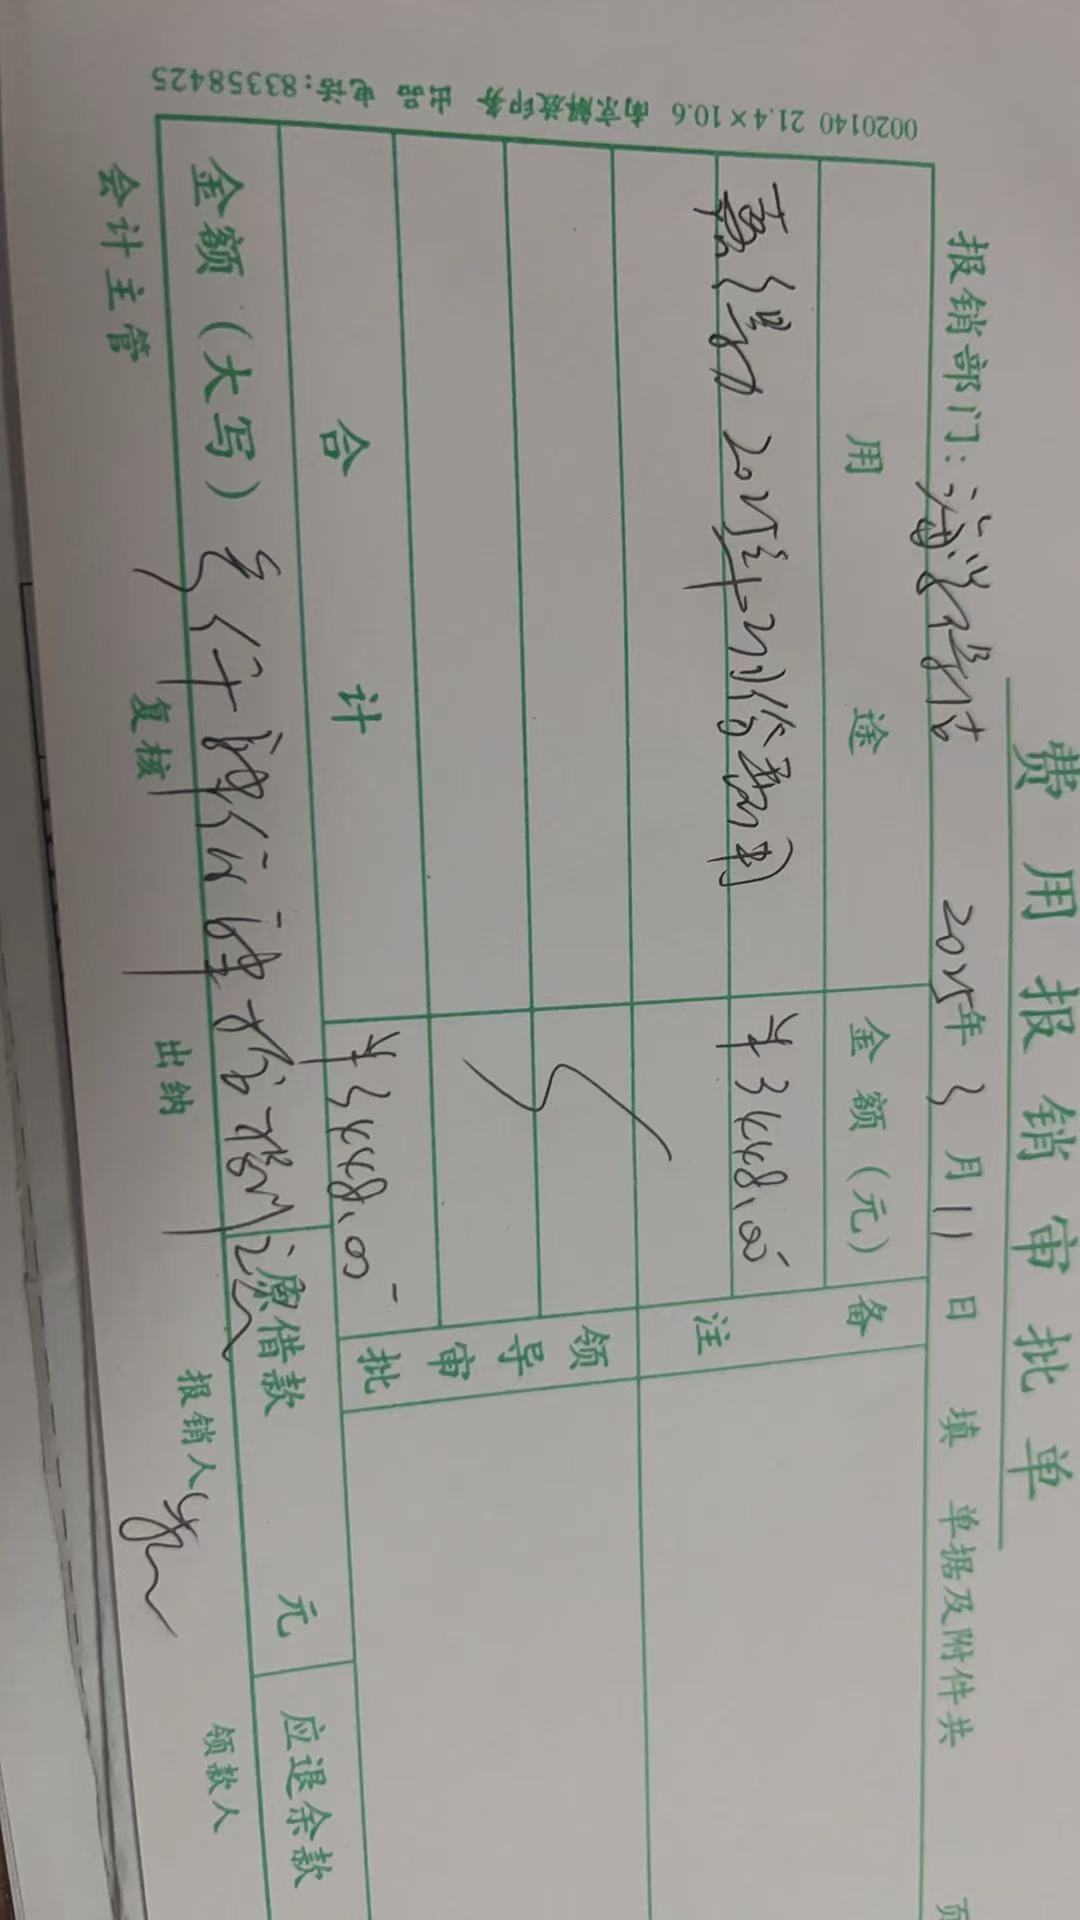 费用报销审批单
报销部门: 2025年 3 月 11 日 填 单据及附件共 页
用途 金额（元） 备注
2025年 用 ¥3448.00
领导审批
合计 ¥3448.00
金额（大写） 仟肆佰肆拾捌元 原借款 元 应退余款
会计主管 复核 出纳 报销人 领款人
0020140 21.4×10.6 南京解放印务 出品 电话:83358425